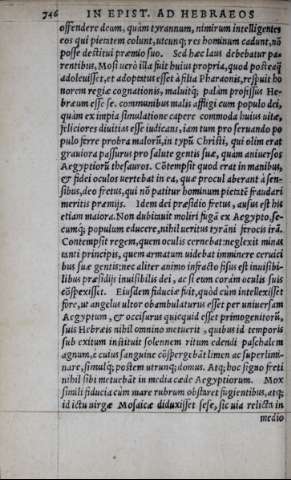 746 IN EPIST. AD HEBRAEOS
offendere deum, quàm tyrannum, nimirum intelligentes
eos qui pietatem colunt, utcunq; res hominum cadunt, nõ
posse destitui præmio suo. Sed hæc laus debebatur pa
rentibus, Mosi uerò illa fuit huius propria, quod posteaq̃
adoleuisset, et adoptatus esset à filia Pharaonis, respuit ho
norem regiæ cognationis, maluitq; palàm professus He-
bræum esse se, communibus malis affligi cum populo dei,
quàm ex impia simulatione capere commoda huius uitæ,
feliciores diuitias esse iudicans, iam tum pro seruando po
pulo ferre probra malorũ, in typũ Christi, qui olim erat
grauiora passurus pro salute gentis suæ, quàm aniuersos
Aegyptiorũ thesauros. Cõtempsit quod erat in manibus,
et fidei oculos uertebat in ea, quæ procul aberant à sen-
sibus, deo fretus, qui nõ patitur hominum pietatẽ fraudari
meritis præmijs. Idem dei præsidio fretus, ausus est his
etiam maiora. Non dubitauit moliri fugã ex Aegypto, se-
cumq; populum educere, nihil ueritus tyrãni ferocis irã.
Contempsit regem, quem oculis cernebat: neglexit minas
tanti principis, quem armatum uidebat imminere ceruici
bus suæ gentis: nec aliter animo infracto fisus est inuisibi-
libus præsidijs inuisibilis dei, ac si eum coràm oculis suis
cõspexisset. Eiusdem fiduciæ fuit, quòd cùm intellexisset
fore, ut angelus ultor obambulaturus esset per uniuersam
Aegyptum, & occisurus quicquid esset primogenitorũ,
suis Hebræis nihil omnino metuerit, quibus id temporis
sub exitum instituit solennem ritum edendi paschalem
agnum, è cuius sanguine cõspergebãt limen ac superlimi-
nare, simulq; postem utrunq; domus. Atq; hoc signo freti
nihil sibi metuebãt in media cæde Aegyptiorum. Mox
simili fiducia cùm mare rubrum obstaret fugientibus, atq;
id ictu uirgæ Mosaicæ diduxisset sese, sic uia relicta in
medio